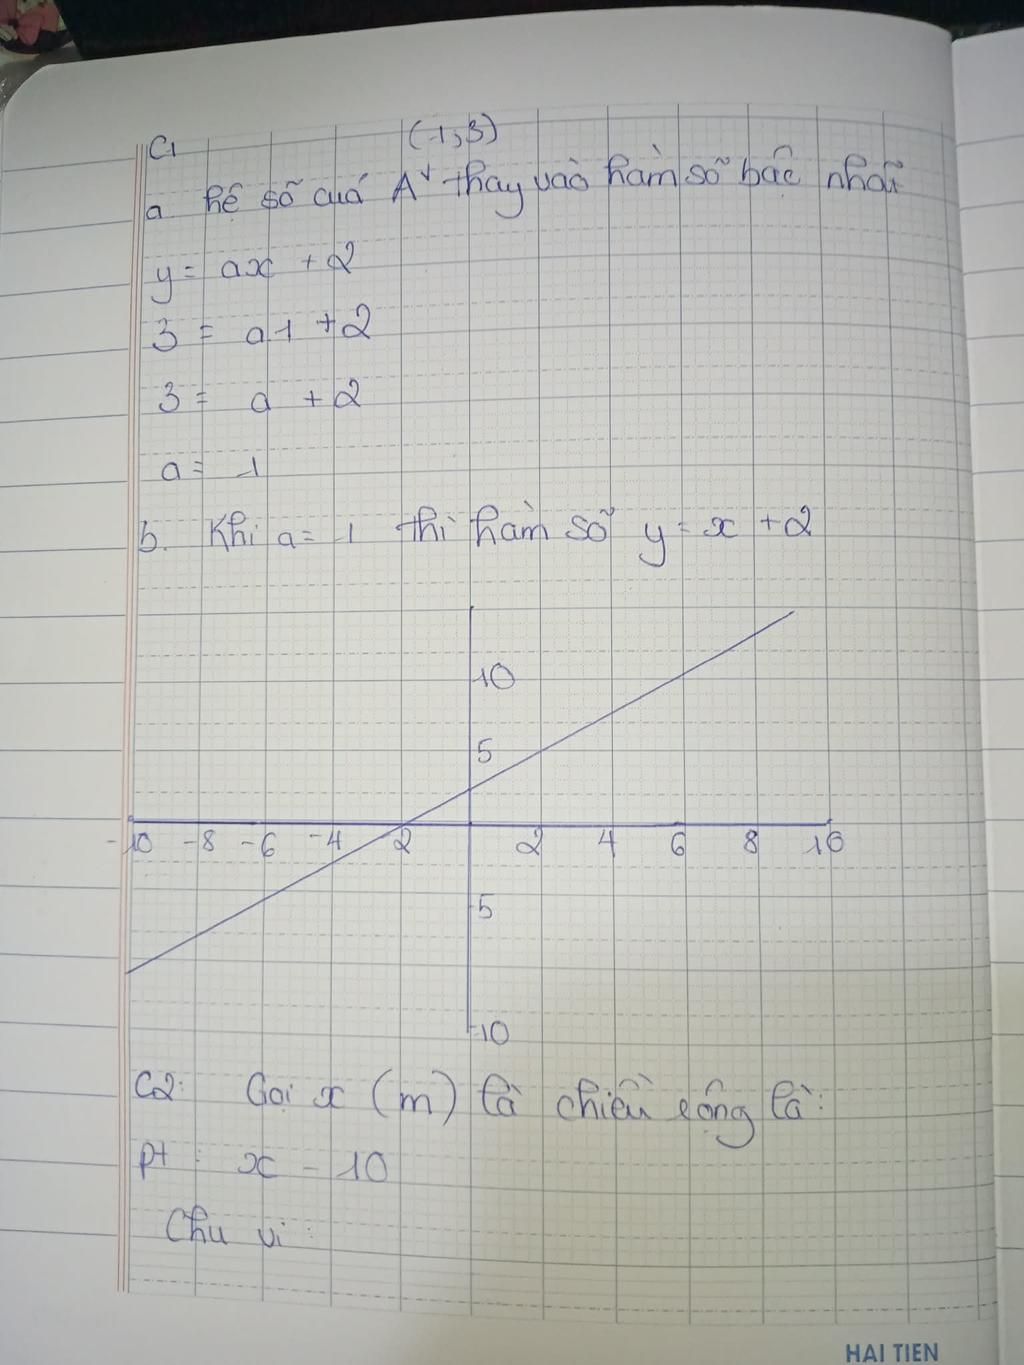 C1 (1;3)
a hệ số quá A thay vào hàm số bậc nhất
y = ax + 2
3 = a1 + 2
3 = a + 2
a = 1
b. Khi a = 1 thì hàm số y = x + 2
10
5
-10 -8 -6 -4 2 2 4 6 8 10
5
-10
C2: Gọi x (m) là chiều rộng là:
Pt : x - 10
Chu vi :
HAI TIEN